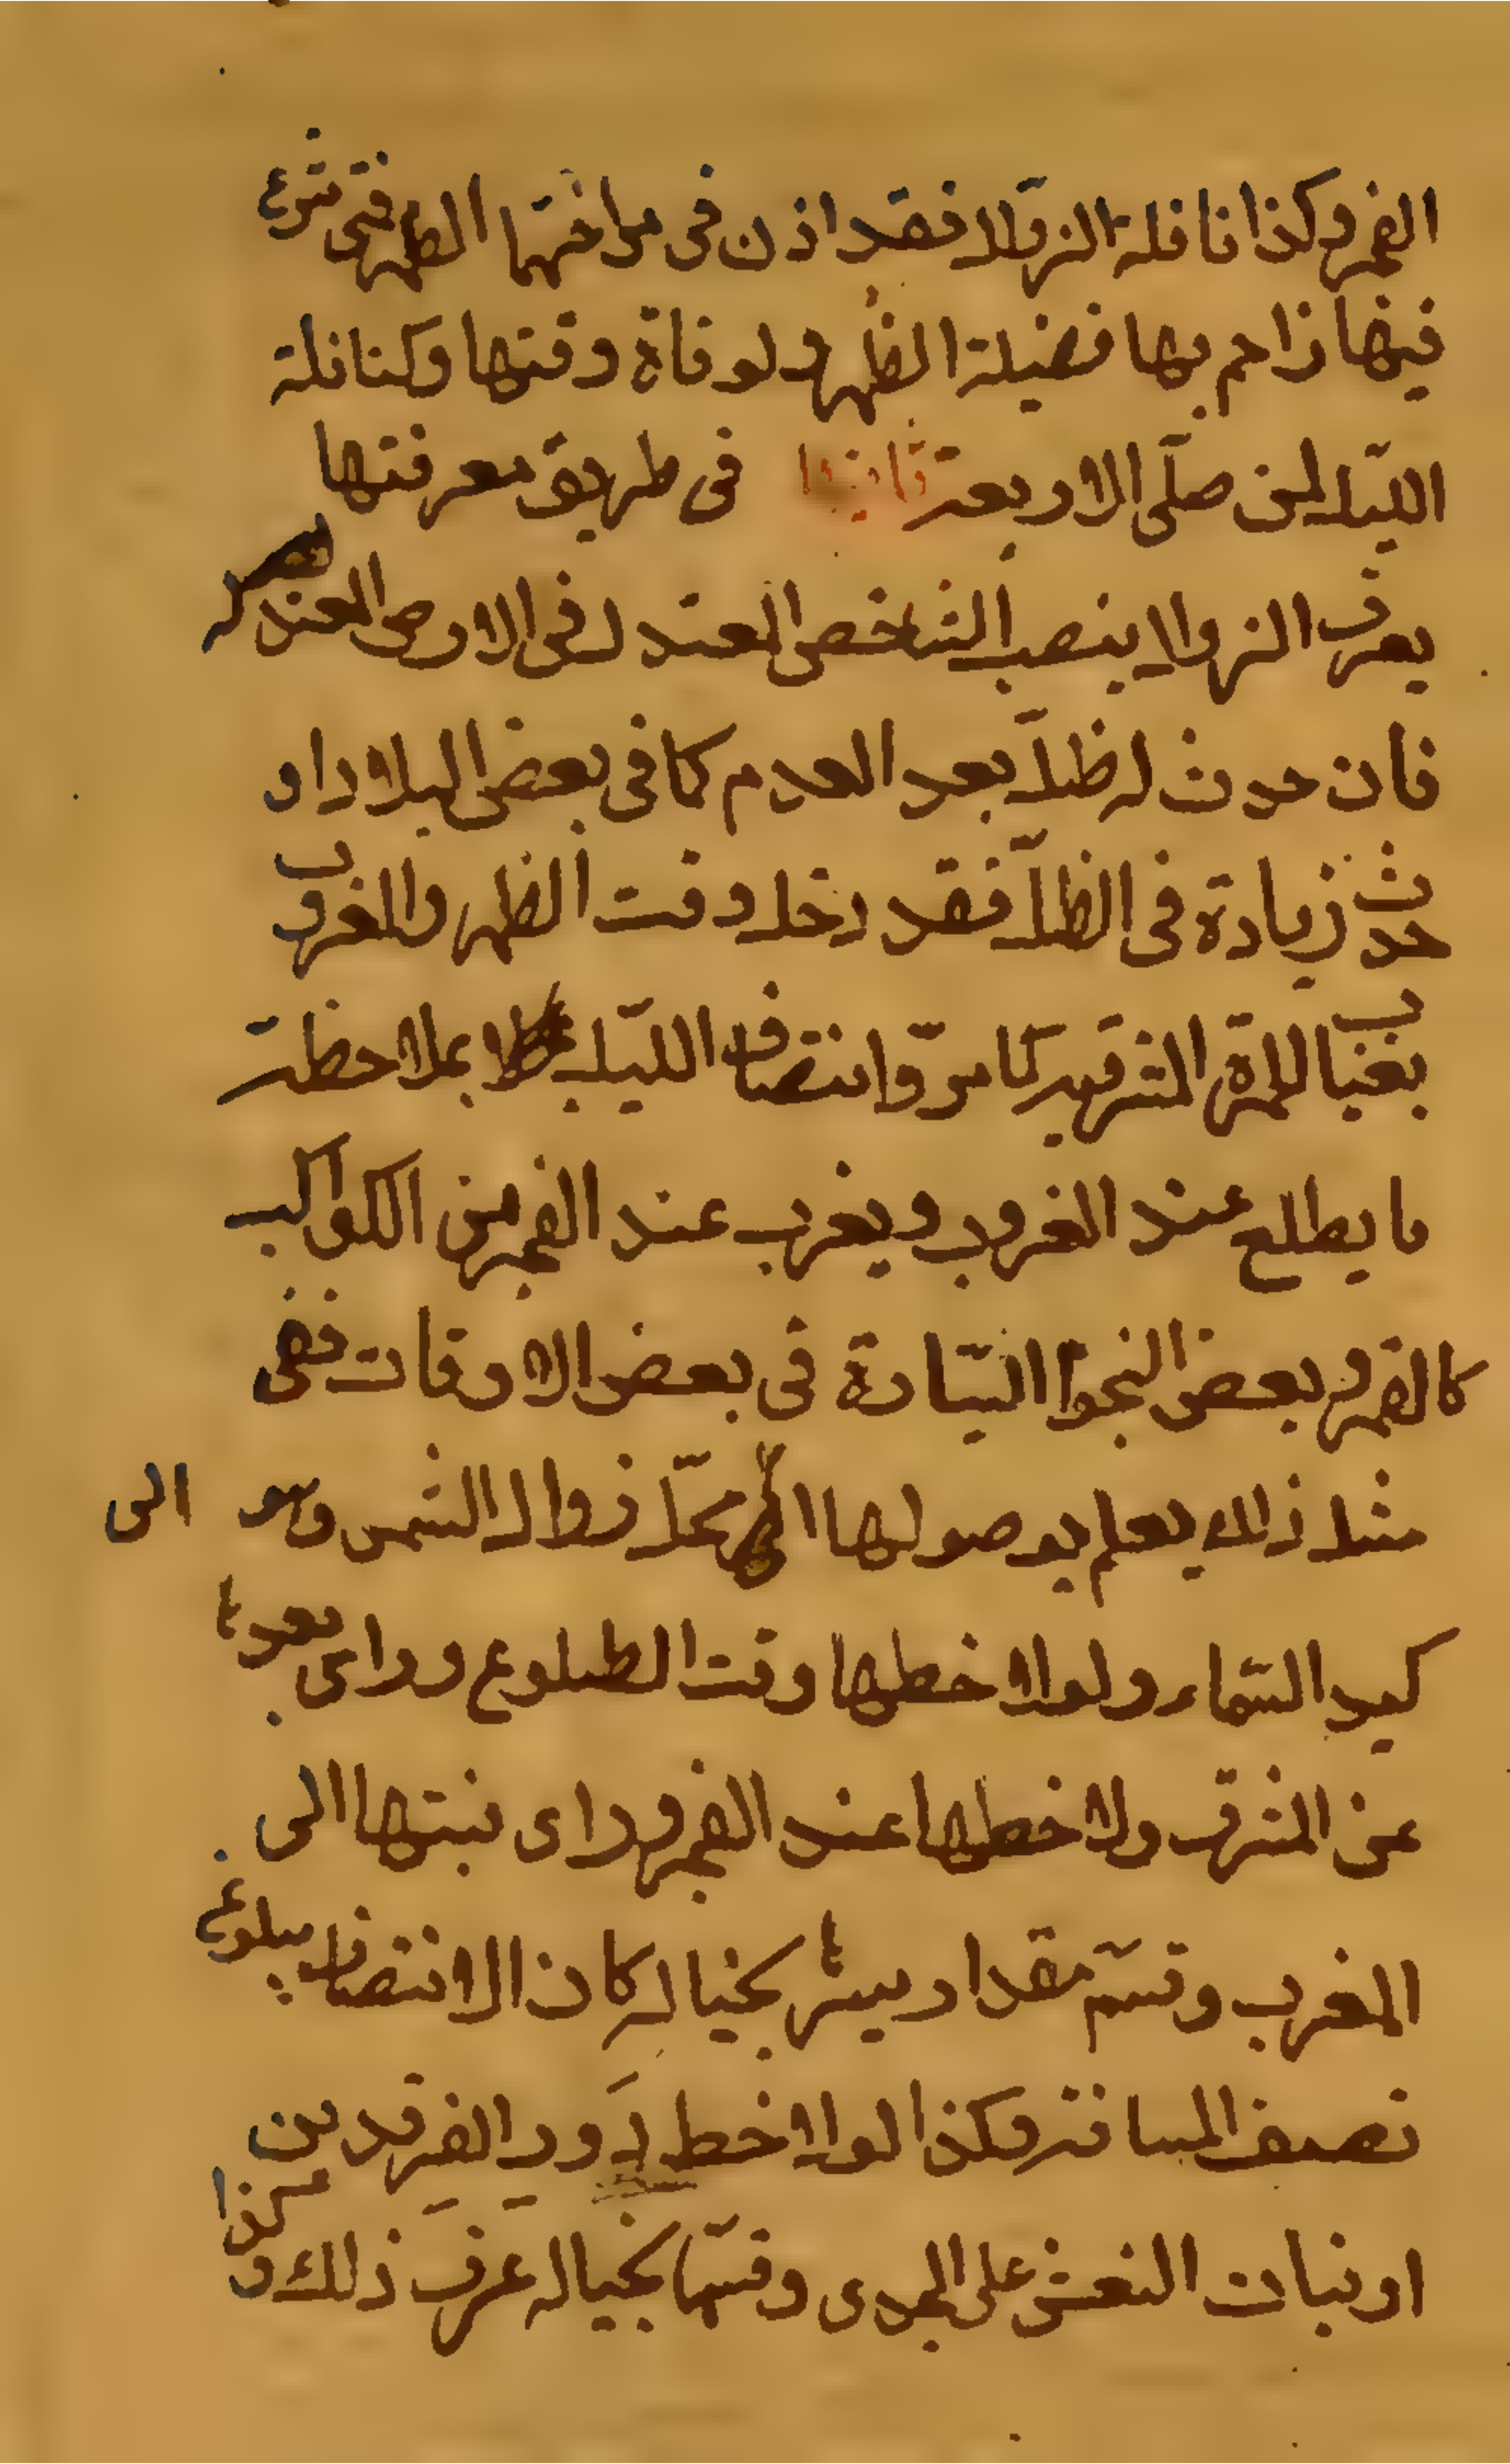 الفجر وكذا نافلة الزوال فقد اذن فى مزاحمتها الظهر فمتى شرع
فيها زاحم بها فضيلة الظهر ولو فاة وقتها وكنافلة
الليل لمن صلى الاربعة ثانيها فى طريق معرفتها
يعرف الزوال بنصب الشاخص المعتدل فى الارض المعتدله
فان حدث له ظل بعد العدم كما فى بعض البلاد او
حدث زيادة فى الظل فقد دخل وقت الظهر والمغرب
بغياب الحمرة المشرقيه كما مر وانتصاف الليل بملاحظة
ما يطلع عند الغروب ويغرب عند الفجر من الكواكب
كالقمر وبعض النجوم السيارة فى بعض الاوقات ففى
مثل ذلك يعلم بوصولها الى محل زوال الشمس وهو الى
كبد السماء ولو لاحظها وقت الطلوع وراى بعدها
عن المشرق ولاحظها عند الفجر وراى نسبتها الى
المغرب وقسم مقدار سيرها بخياله كان الانتصاف ببلوغها
نصف المسافة وكذا لو لاحظ دور الفرقدين
او بنات النعش على الجدى وقسمها بخياله عرف ذلك وكذا